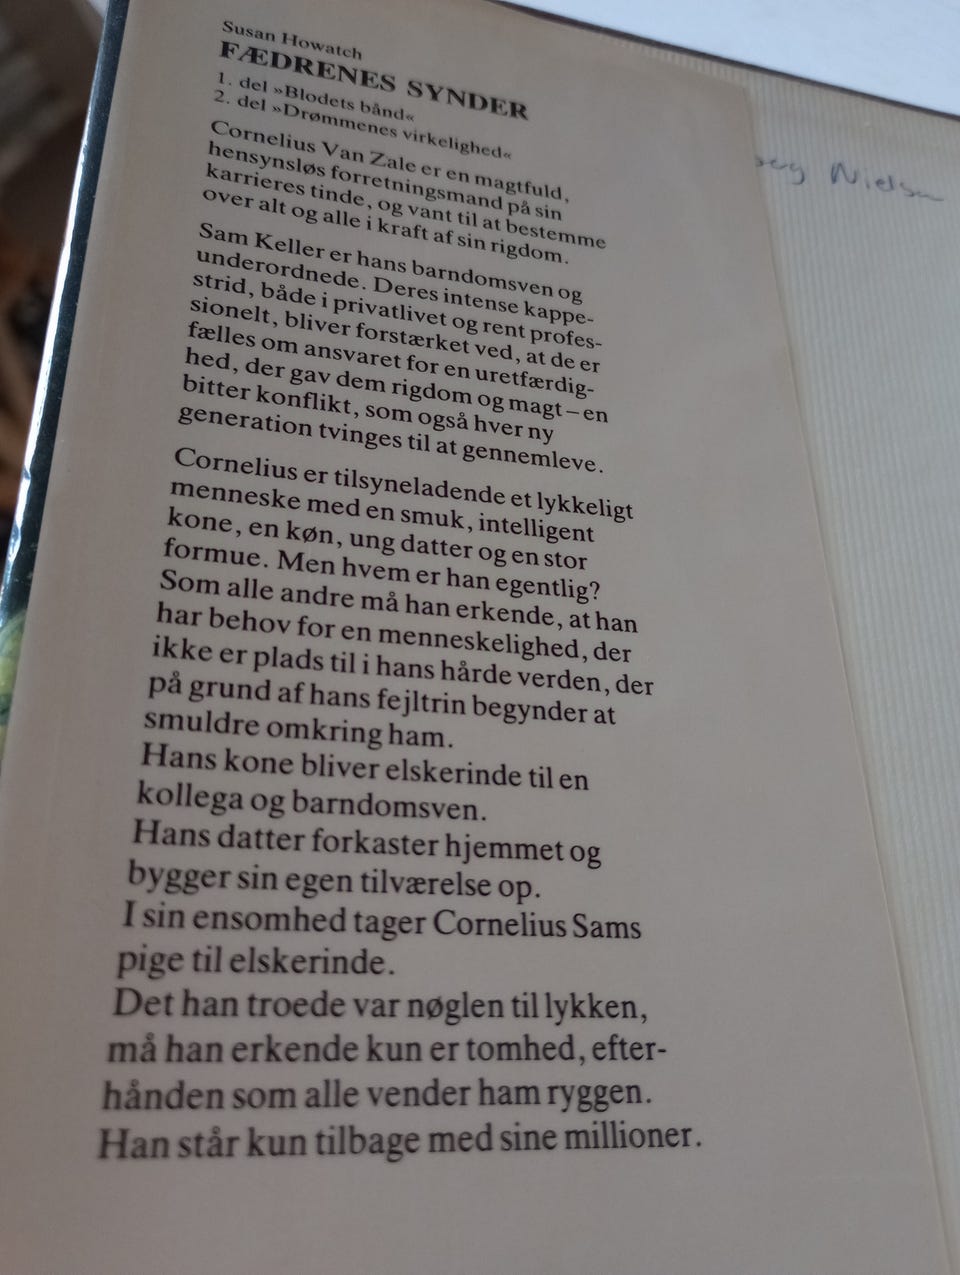 Susan Howatch
FÆDRENES SYNDER
1. del »Blodets bånd«
2. del »Drømmenes virkelighed«
Cornelius Van Zale er en magtfuld,
hensynsløs forretningsmand på sin
karrieres tinde, og vant til at bestemme
over alt og alle i kraft af sin rigdom.
Sam Keller er hans barndomsven og
underordnede. Deres intense kappe-
strid, både i privatlivet og rent profes-
sionelt, bliver forstærket ved, at de er
fælles om ansvaret for en uretfærdig-
hed, der gav dem rigdom og magt – en
bitter konflikt, som også hver ny
generation tvinges til at gennemleve.
Cornelius er tilsyneladende et lykkeligt
menneske med en smuk, intelligent
kone, en køn, ung datter og en stor
formue. Men hvem er han egentlig?
Som alle andre må han erkende, at han
har behov for en menneskelighed, der
ikke er plads til i hans hårde verden, der
på grund af hans fejltrin begynder at
smuldre omkring ham.
Hans kone bliver elskerinde til en
kollega og barndomsven.
Hans datter forkaster hjemmet og
bygger sin egen tilværelse op.
I sin ensomhed tager Cornelius Sams
pige til elskerinde.
Det han troede var nøglen til lykken,
må han erkende kun er tomhed, efter-
hånden som alle vender ham ryggen.
Han står kun tilbage med sine millioner.
Nielsen